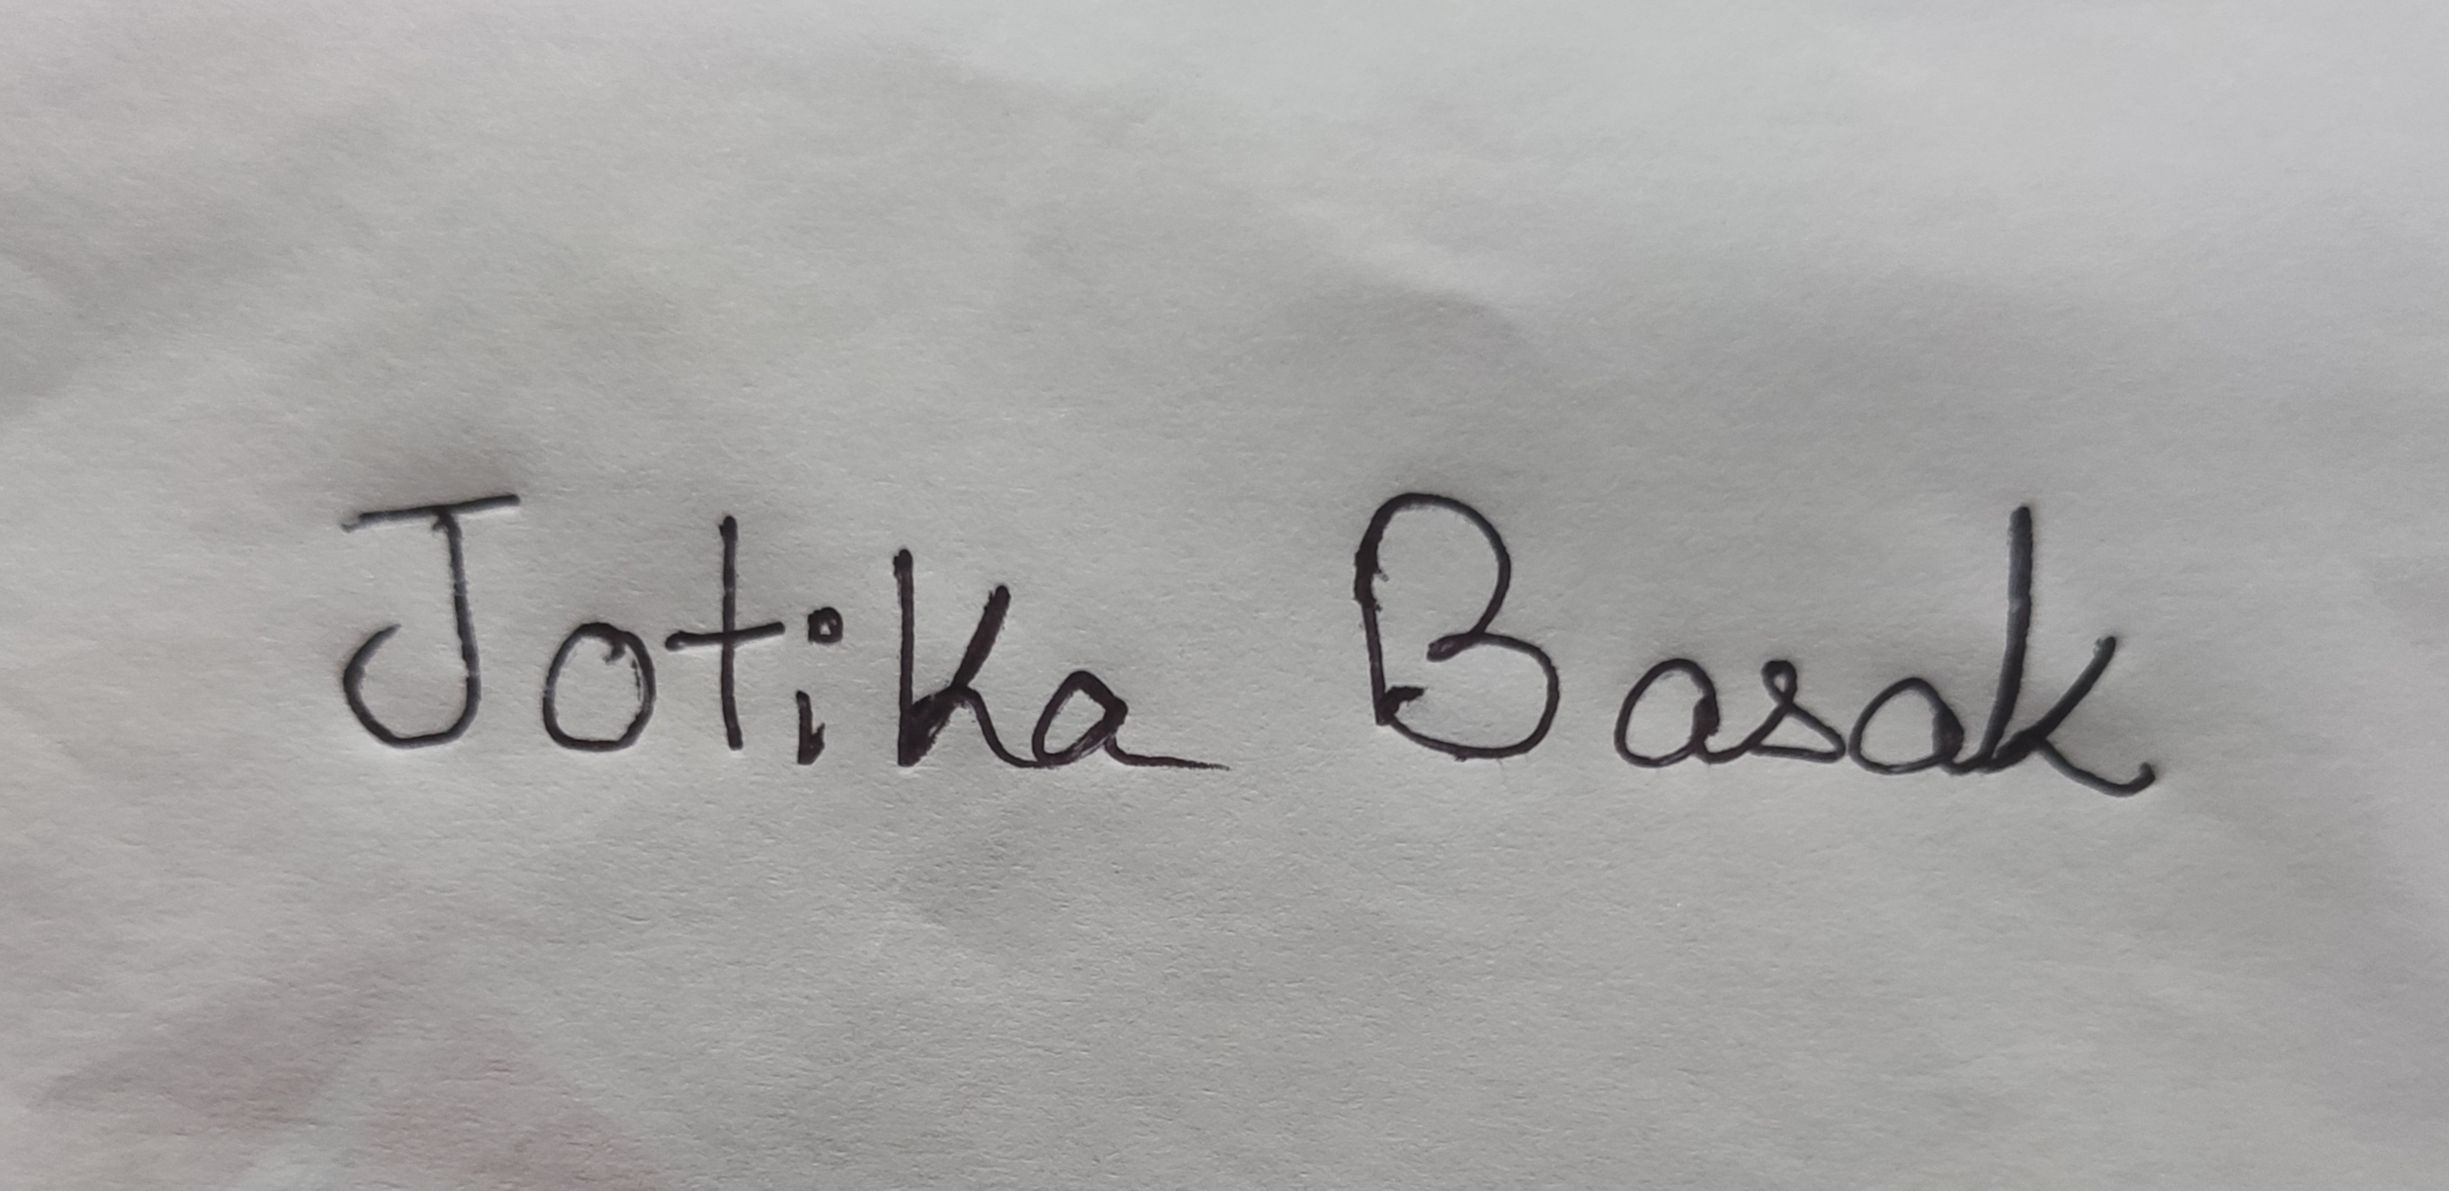 Jotika Basak